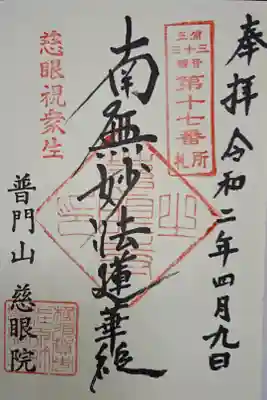 奉拝 令和二年四月九日
第十七番
札所
南無妙法蓮華経
慈眼視衆生
普門山 慈眼院